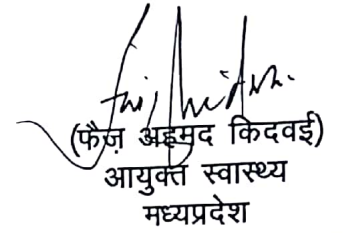 (फैज़ अहमद किदवई)
आयुक्त स्वास्थ्य
मध्यप्रदेश